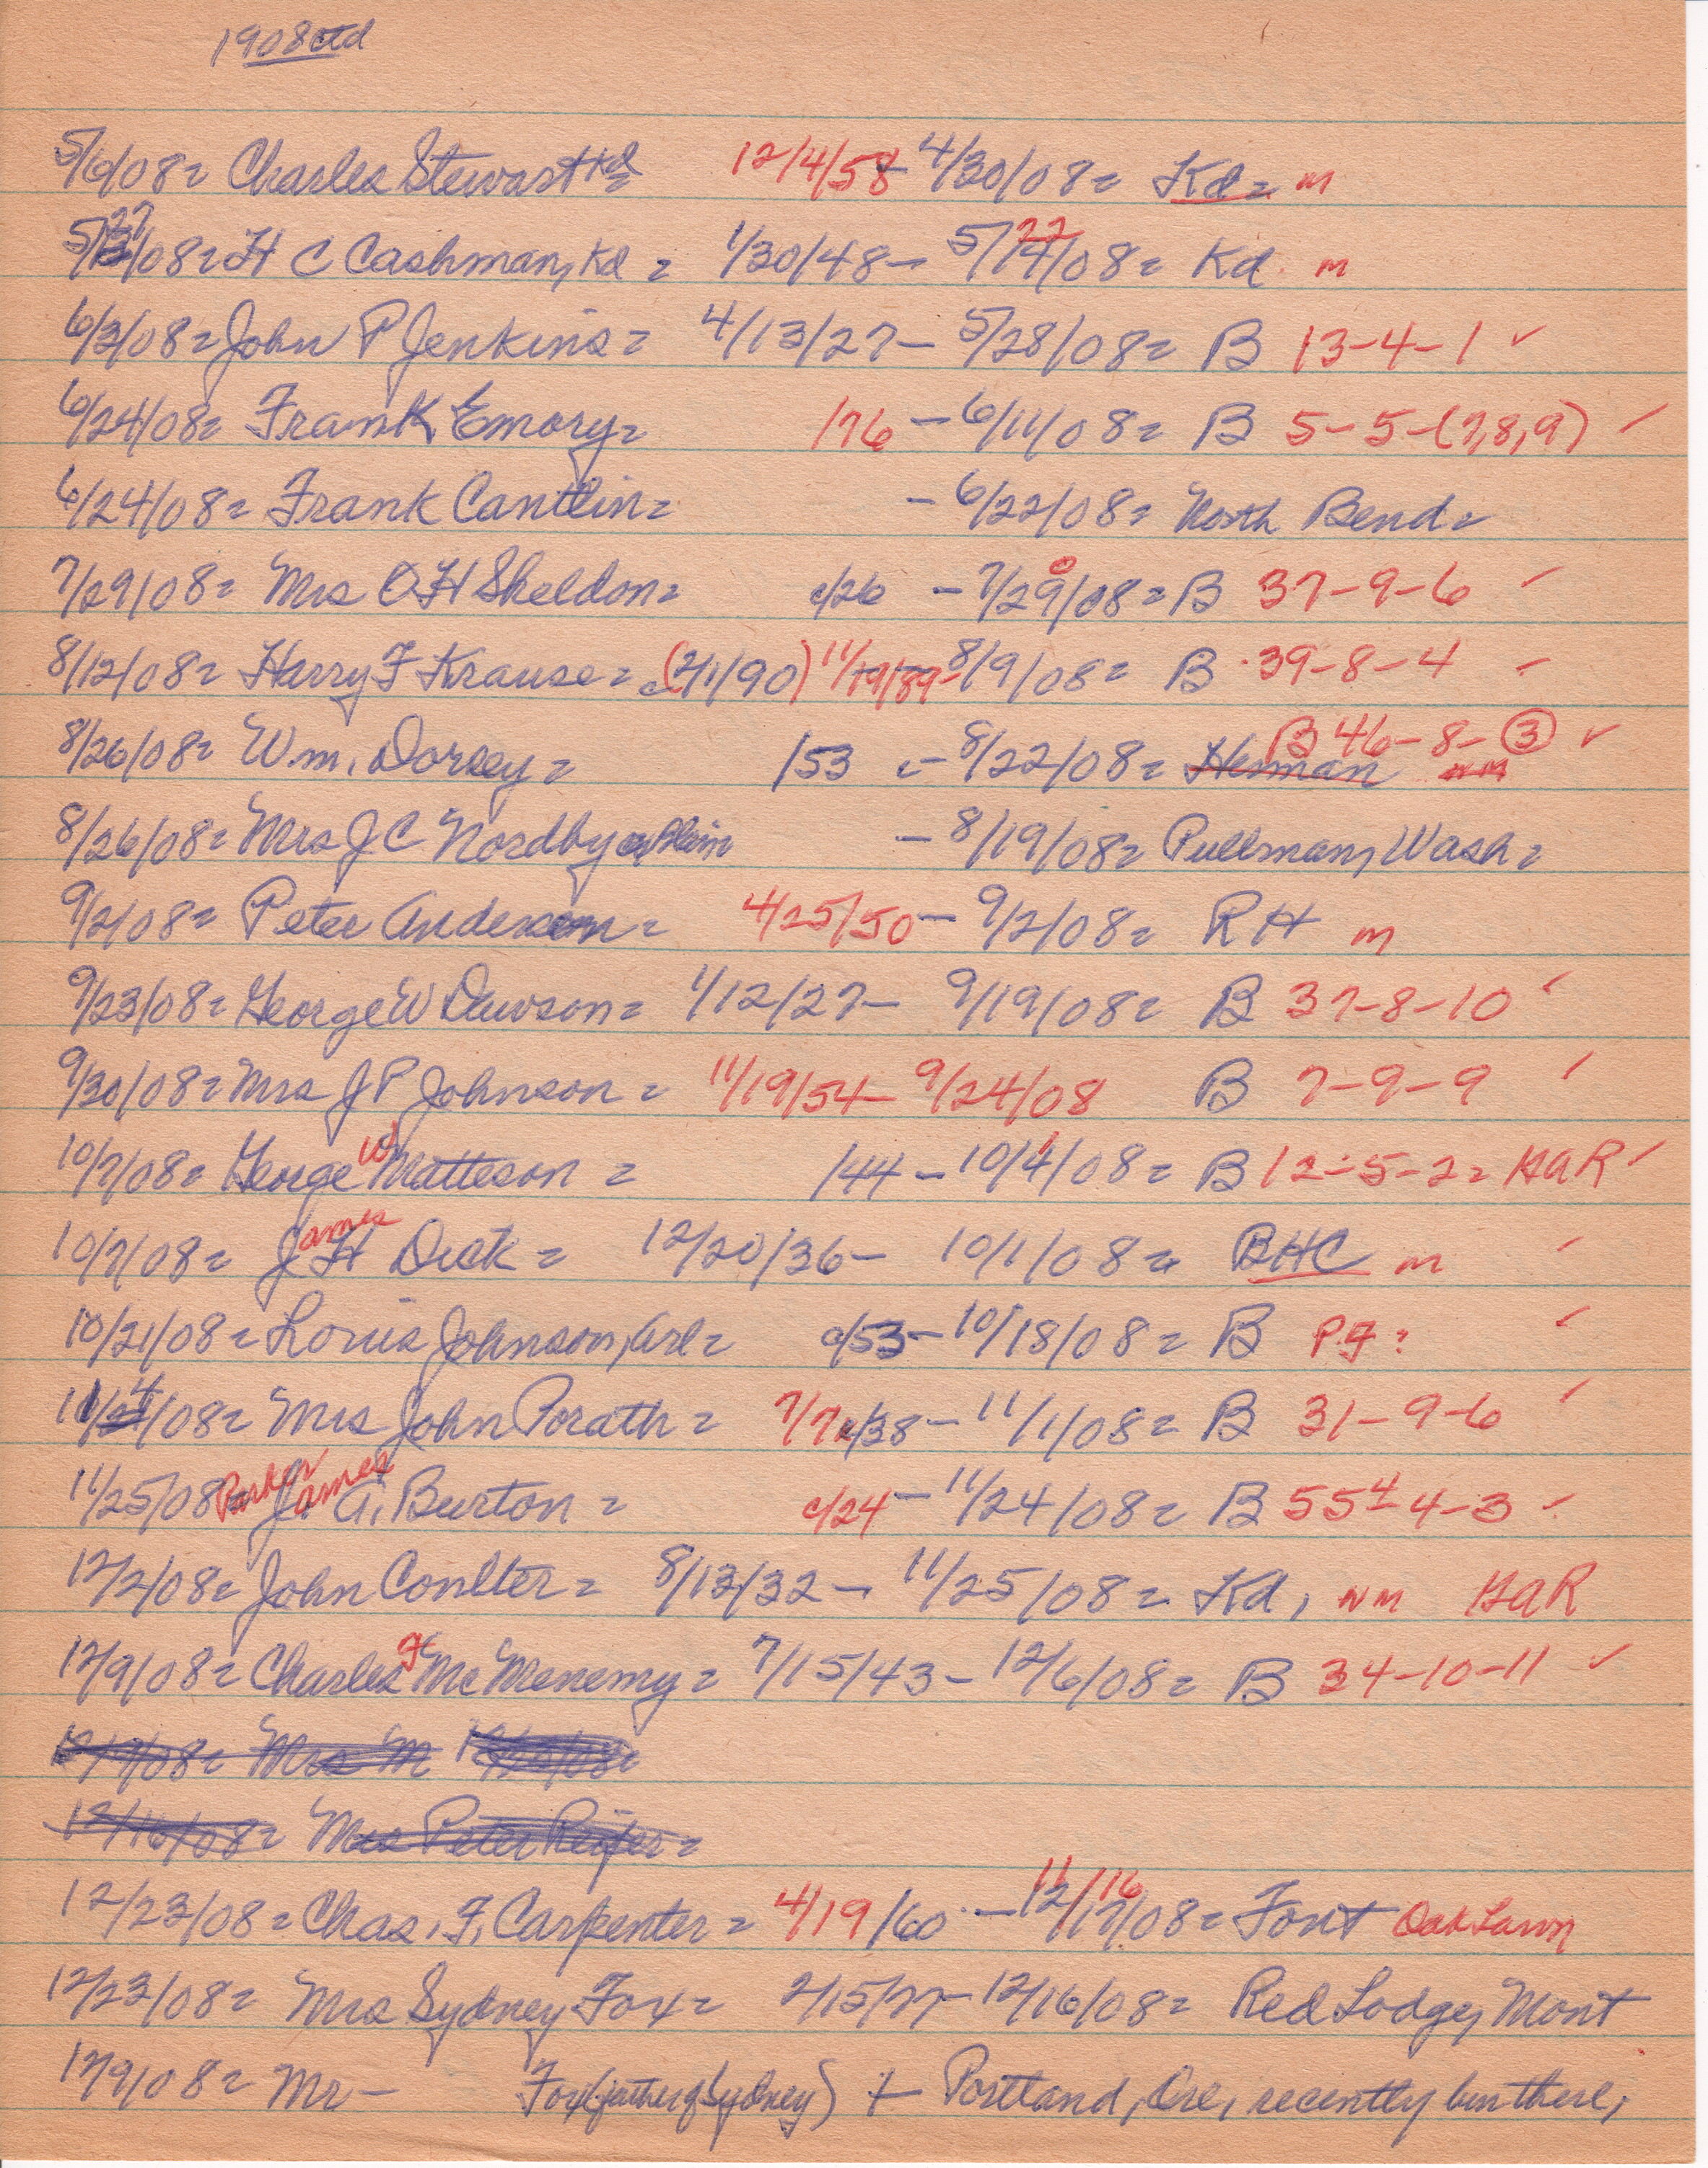 1908 ctd
5/6/08= Charles Stewart Kd= 12/4/58- 4/30/08= Kd= m
5/27/08= H C Cashman, Kd = 1/30/48- 5/22/08= Kd. m
6/3/08= John P Jenkins= 4/13/27- 5/28/08= B 13-4-1 ✓
6/24/08= Frank Emory= /76 - 6/11/08= B 5-5-(7,8,9) ✓
6/24/08= Frank Cantlin= - 6/22/08= North Bend=
7/29/08= Mrs O H Sheldon= c/26 - 7/20/08= B 37-9-6 ✓
8/12/08= Harry F Krause= c(2/1/90) 11/19/89- 8/9/08= B 39-8-4 -
8/26/08= Wm. Dorsey= /53 - 8/22/08= Herman B 46-8-3 ✓ NM
8/26/08= Mrs J C Nordby - 8/19/08= Pullman, Wash=
9/2/08= Peter Anderson= 4/25/50- 9/2/08= RH m
9/23/08= George W Dawson= 1/12/27- 9/19/08= B 37-8-10 ✓
9/30/08= Mrs J P Johnson= 11/19/54- 9/24/08 B 7-9-9 ✓
10/7/08= George W Matteson = /44 - 10/1/08= B 12-5-2= GAR ✓
10/7/08= James H Dick= 12/20/36- 10/1/08= BHC m ✓
10/21/08= Louis Johnson, Arl= c/53- 10/18/08= B P.F= ✓
11/4/08= Mrs John Porath= 7/7/38- 11/1/08= B 31-9-6 ✓
11/25/08= Parker James A. Burton= c/24- 11/24/08= B 55-4-3 ✓
12/2/08= John Coulter= 8/13/32- 11/25/08= Kd, NM GAR
12/9/08= Charles F McMenemy= 7/15/43- 12/6/08= B 34-10-11 ✓
12/9/08= Mrs M
12/16/08= Mrs Peter
12/23/08= Chas. F. Carpenter= 4/19/60- 11/16/08= Font Oak Lawn
12/23/08= Mrs Sydney Fox= 2/15/77- 12/16/08= Red Lodge, Mont
12/9/08= Mr- Fox (father of Sydney) + Portland, Ore, recently bur there,